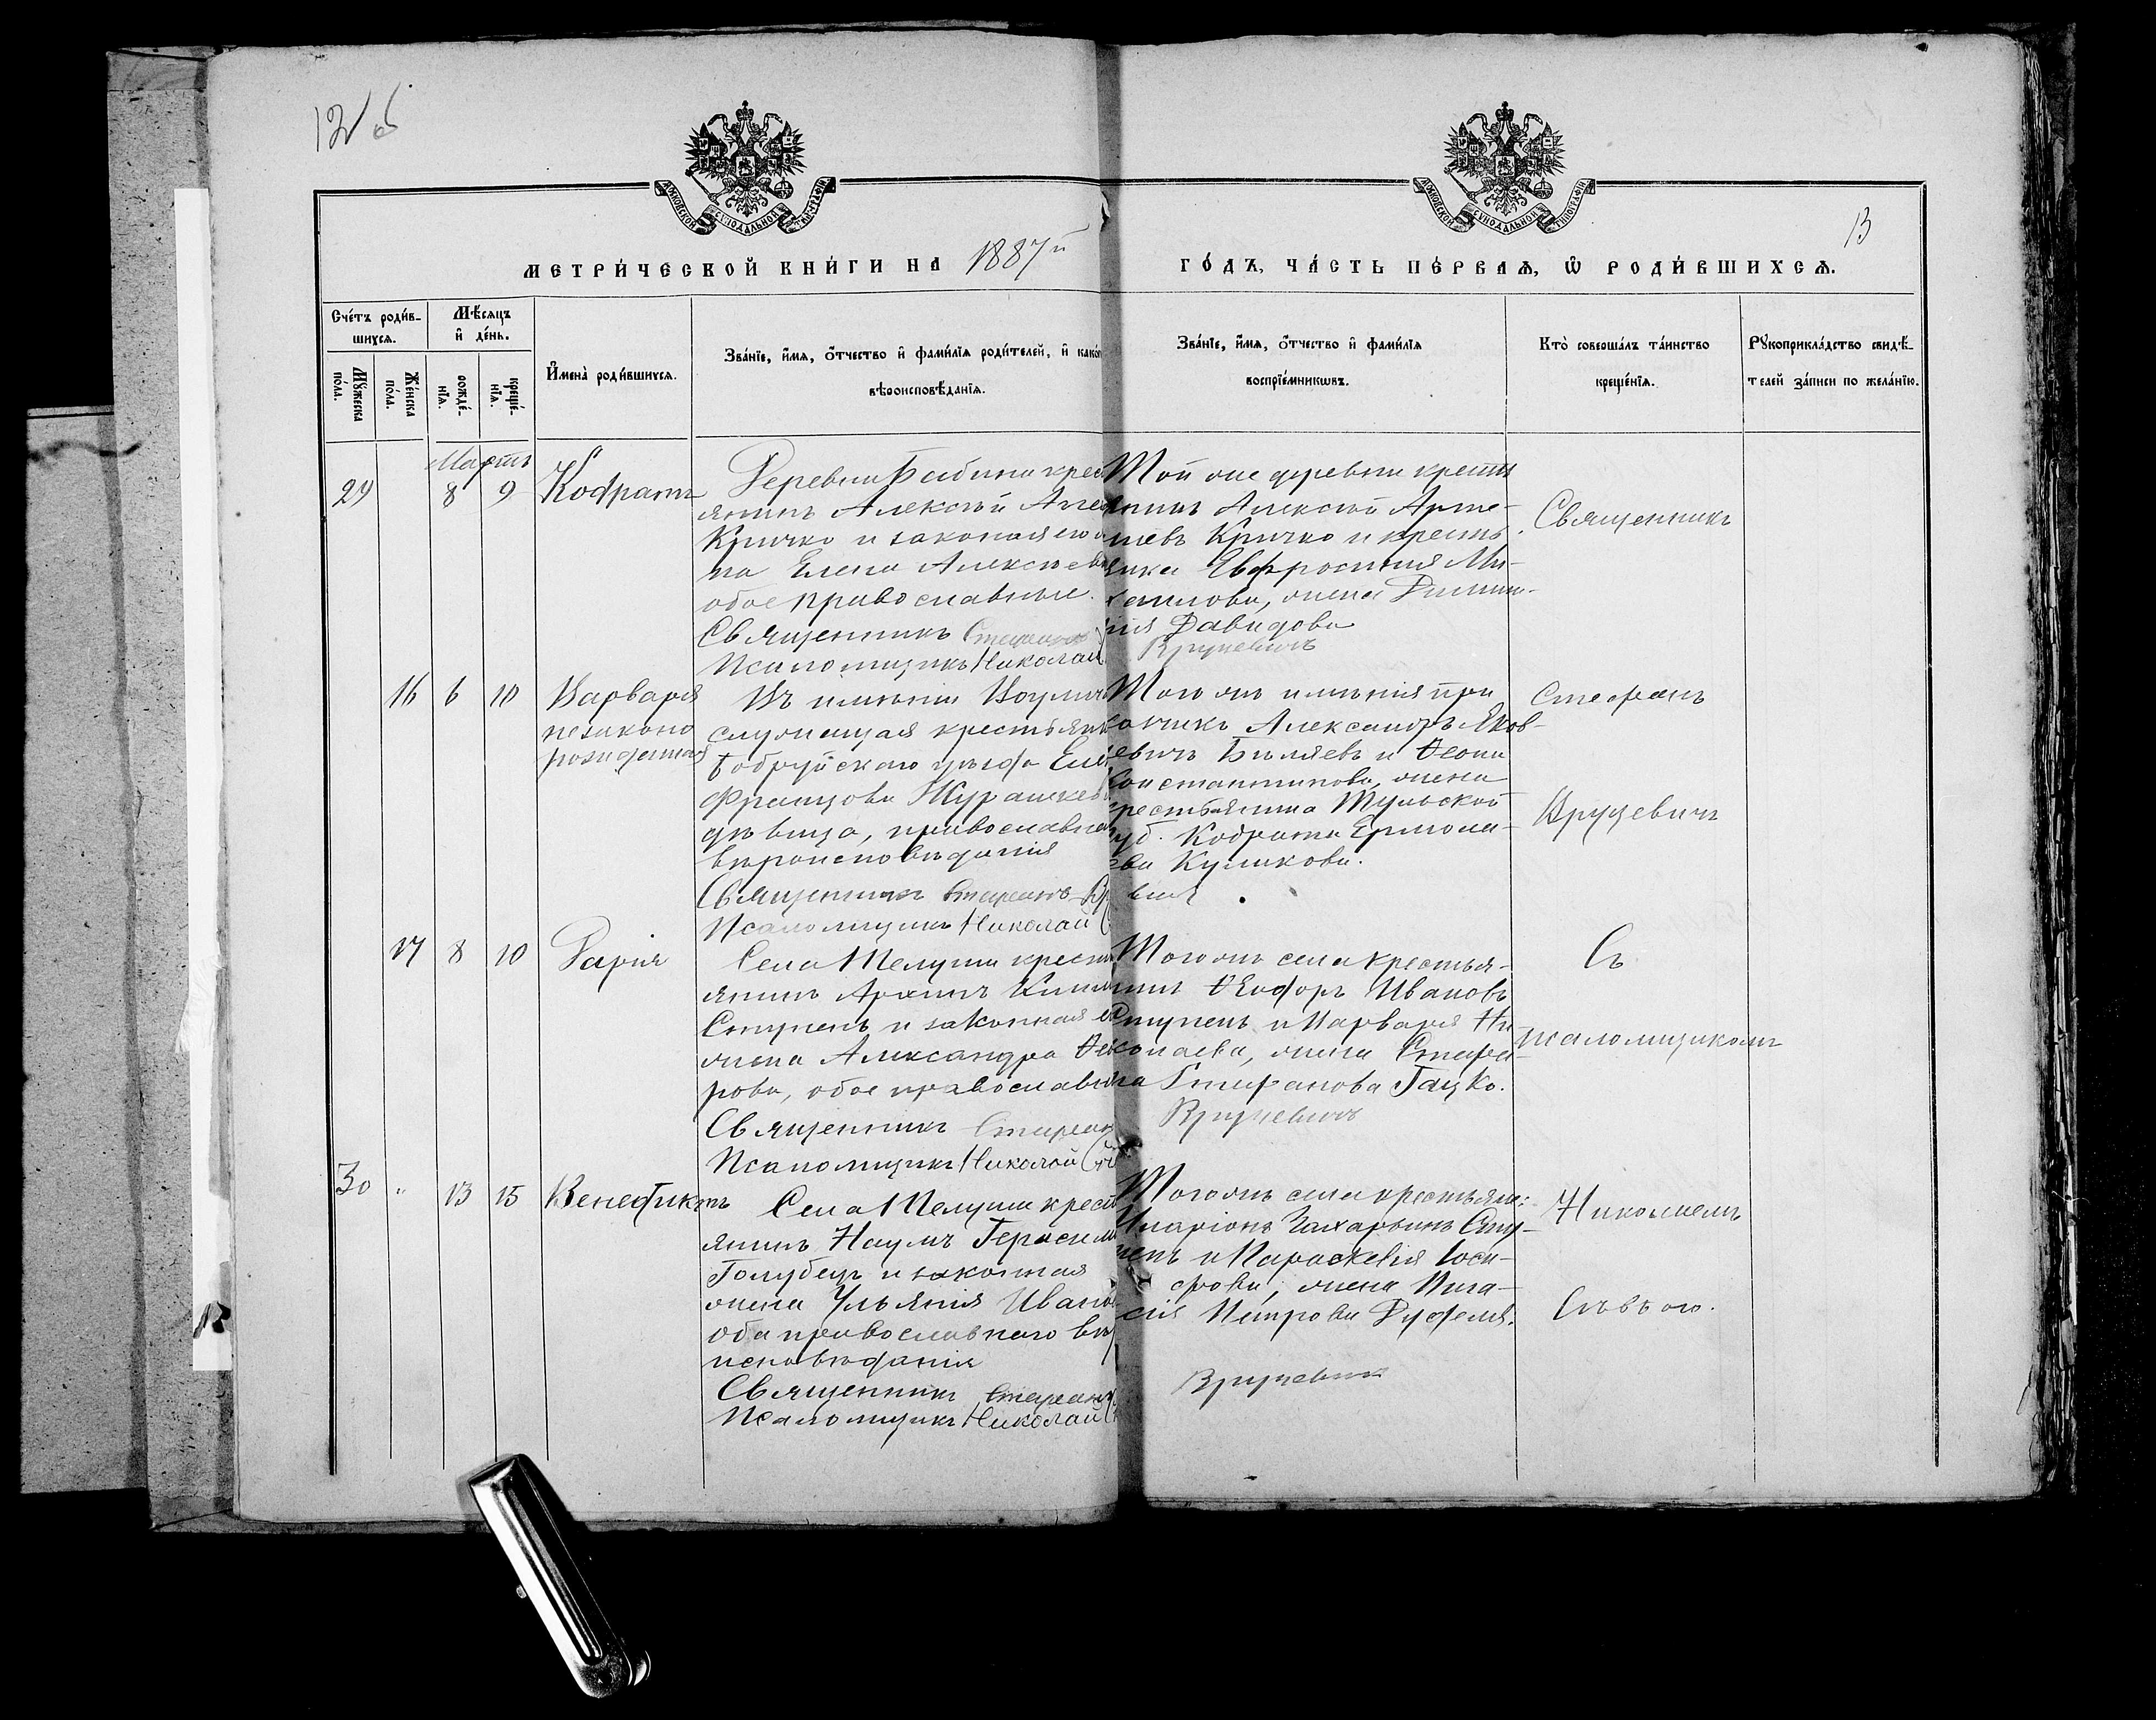 13
МЕТРИ́ЧЕСКОЙ КНИ́ГИ НА 1887й ГО́ДЪ, ЧА́СТЬ ПЕ́РВАѦ, Ѡ҆ РОДИ́ВШИХСѦ.
Сче́тъ роди́в-
шихсѧ.
Мꙋ́жеска
по́ла.
Же́нска
по́ла.
Мѣ́сѧцъ
и҆ де́нь.
рожде́-
нїѧ.
креще́-
нїѧ.
И҆мена̀ роди́вшихсѧ.
Зва́нїе, и҆́мѧ, ѻ҆́тчество и҆ фами́лїѧ роди́телей, и҆ како́
вѣроисповѣ́данїѧ.
Зва́нїе, и҆́мѧ, ѻ҆́тчество и҆ фами́лїѧ
воспрїе́мникѡвъ.
Кто̀ соверша́лъ та́инство
креще́нїѧ.
Рꙋкоприкла́дство свидѣ́-
телей за́писи по жела́нїю.
Мартъ
29 8 9 Кодратъ
Деревни Бабини крес
янинъ Алексѣй
Кричко и законая его
на Елена Алексѣев
обое православные.
Священникъ Стефанъ
Псаломщикъ Николай
Той же деревни крестя
янинъ Алексѣй Арте-
миевъ Кричко и кресть
янка Евфросинія Ми-
хаилова, жена Дими-
рія Давидова
Вруцевичъ
Священникъ
16 6 10 Варвара
незаконо
рожденная
Въ имѣніи
служащая крестьян
Бобруйскаго уѣзда Ели
Францова Журавкев
дѣвица, православна
вѣроисповѣданія
Священникъ Стефанъ Вр
Псаломщикъ Николай
Того жъ имѣнія при
кащикъ Александръ Яков-
левичъ Бѣляевъ и Ѳеони
Константинова, жена
крестьянина Тульской
губ. Кодрата Ермола-
ева Куликова.
Стефанъ
Вруцевичъ
17 8 10 Дарія
Села Телуши крест
янинъ Архипъ Клим
Ступень и законная е
жена Александра Ѳео
рова, обое православн
Священникъ Стефанъ
Псаломщикъ Николай
Того жъ села крестья-
нинъ Ѳеодоръ Ивановъ
Ступень и Варвара Ни
колаева, жена Стефа-
на Стефанова Гацко.
Вруцевичъ
Съ
псаломщикомъ
30 " 13 15 Венедиктъ
Села Телуши крест
янинъ Наумъ Герасим
Голубецъ и законная
жена Ульянія Ивано
оба православнаго вѣр
исповѣданія
Священникъ Стефанъ
Псаломщикъ Николай
Того жъ села крестьяни:
Иларіонъ Захарьинъ Сту-
пень и Параскевія Іоси-
фова, жена
Петрова
Вруцевичъ
Николаемъ